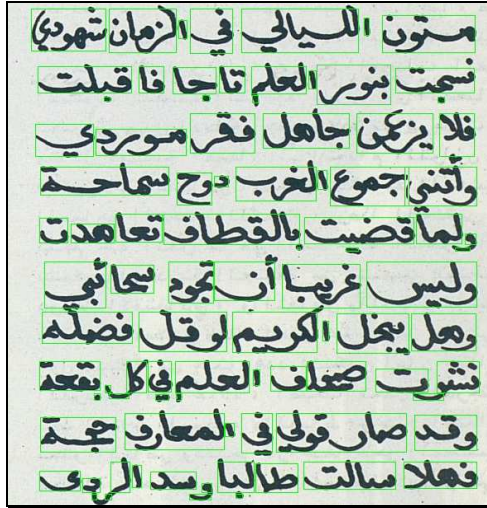 متون الليالي في الزمان شهودي
نسجت بنور العلم تاجا فاقبلت
فلا يزعمن جاهل فقر موردي
وأتني جموع الغرب دوح سماحة
ولما قضيت بالقطاف تعاهدت
وليس غريبا أن تجود سحائبي
وهل يبخل الكريم لو قل فضله
نشرت صحاف العلم في كل بقعة
وقد صار قولي في المعارف حجة
فهلا سالت طالبا وسد الردى